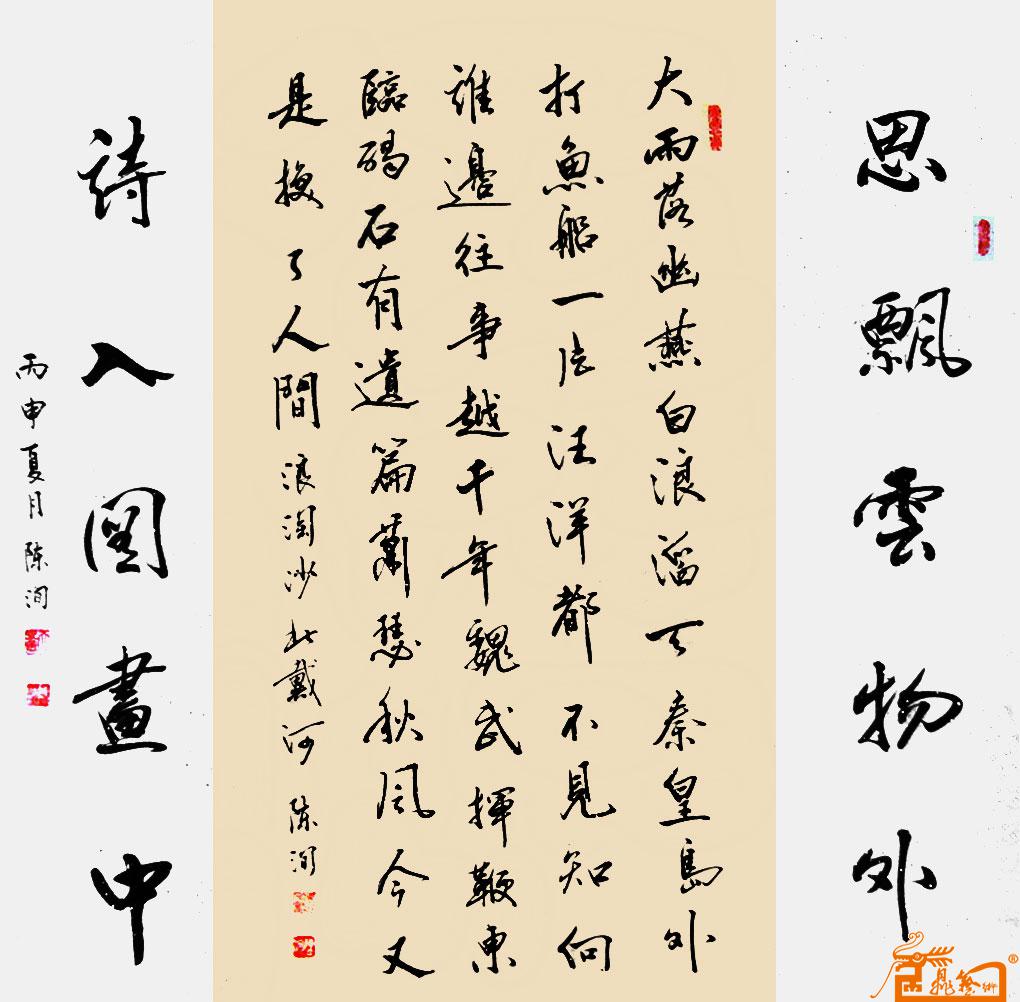 思飄雲物外
大雨落幽燕白浪滔天秦皇島外
打魚船一片汪洋都不見知向
誰邊往事越千年魏武揮鞭東
臨碣石有遺篇蕭瑟秋風今又
是換了人間 浪淘沙 北戴河 陈洵
詩入圖畫中
丙申夏月 陈洵